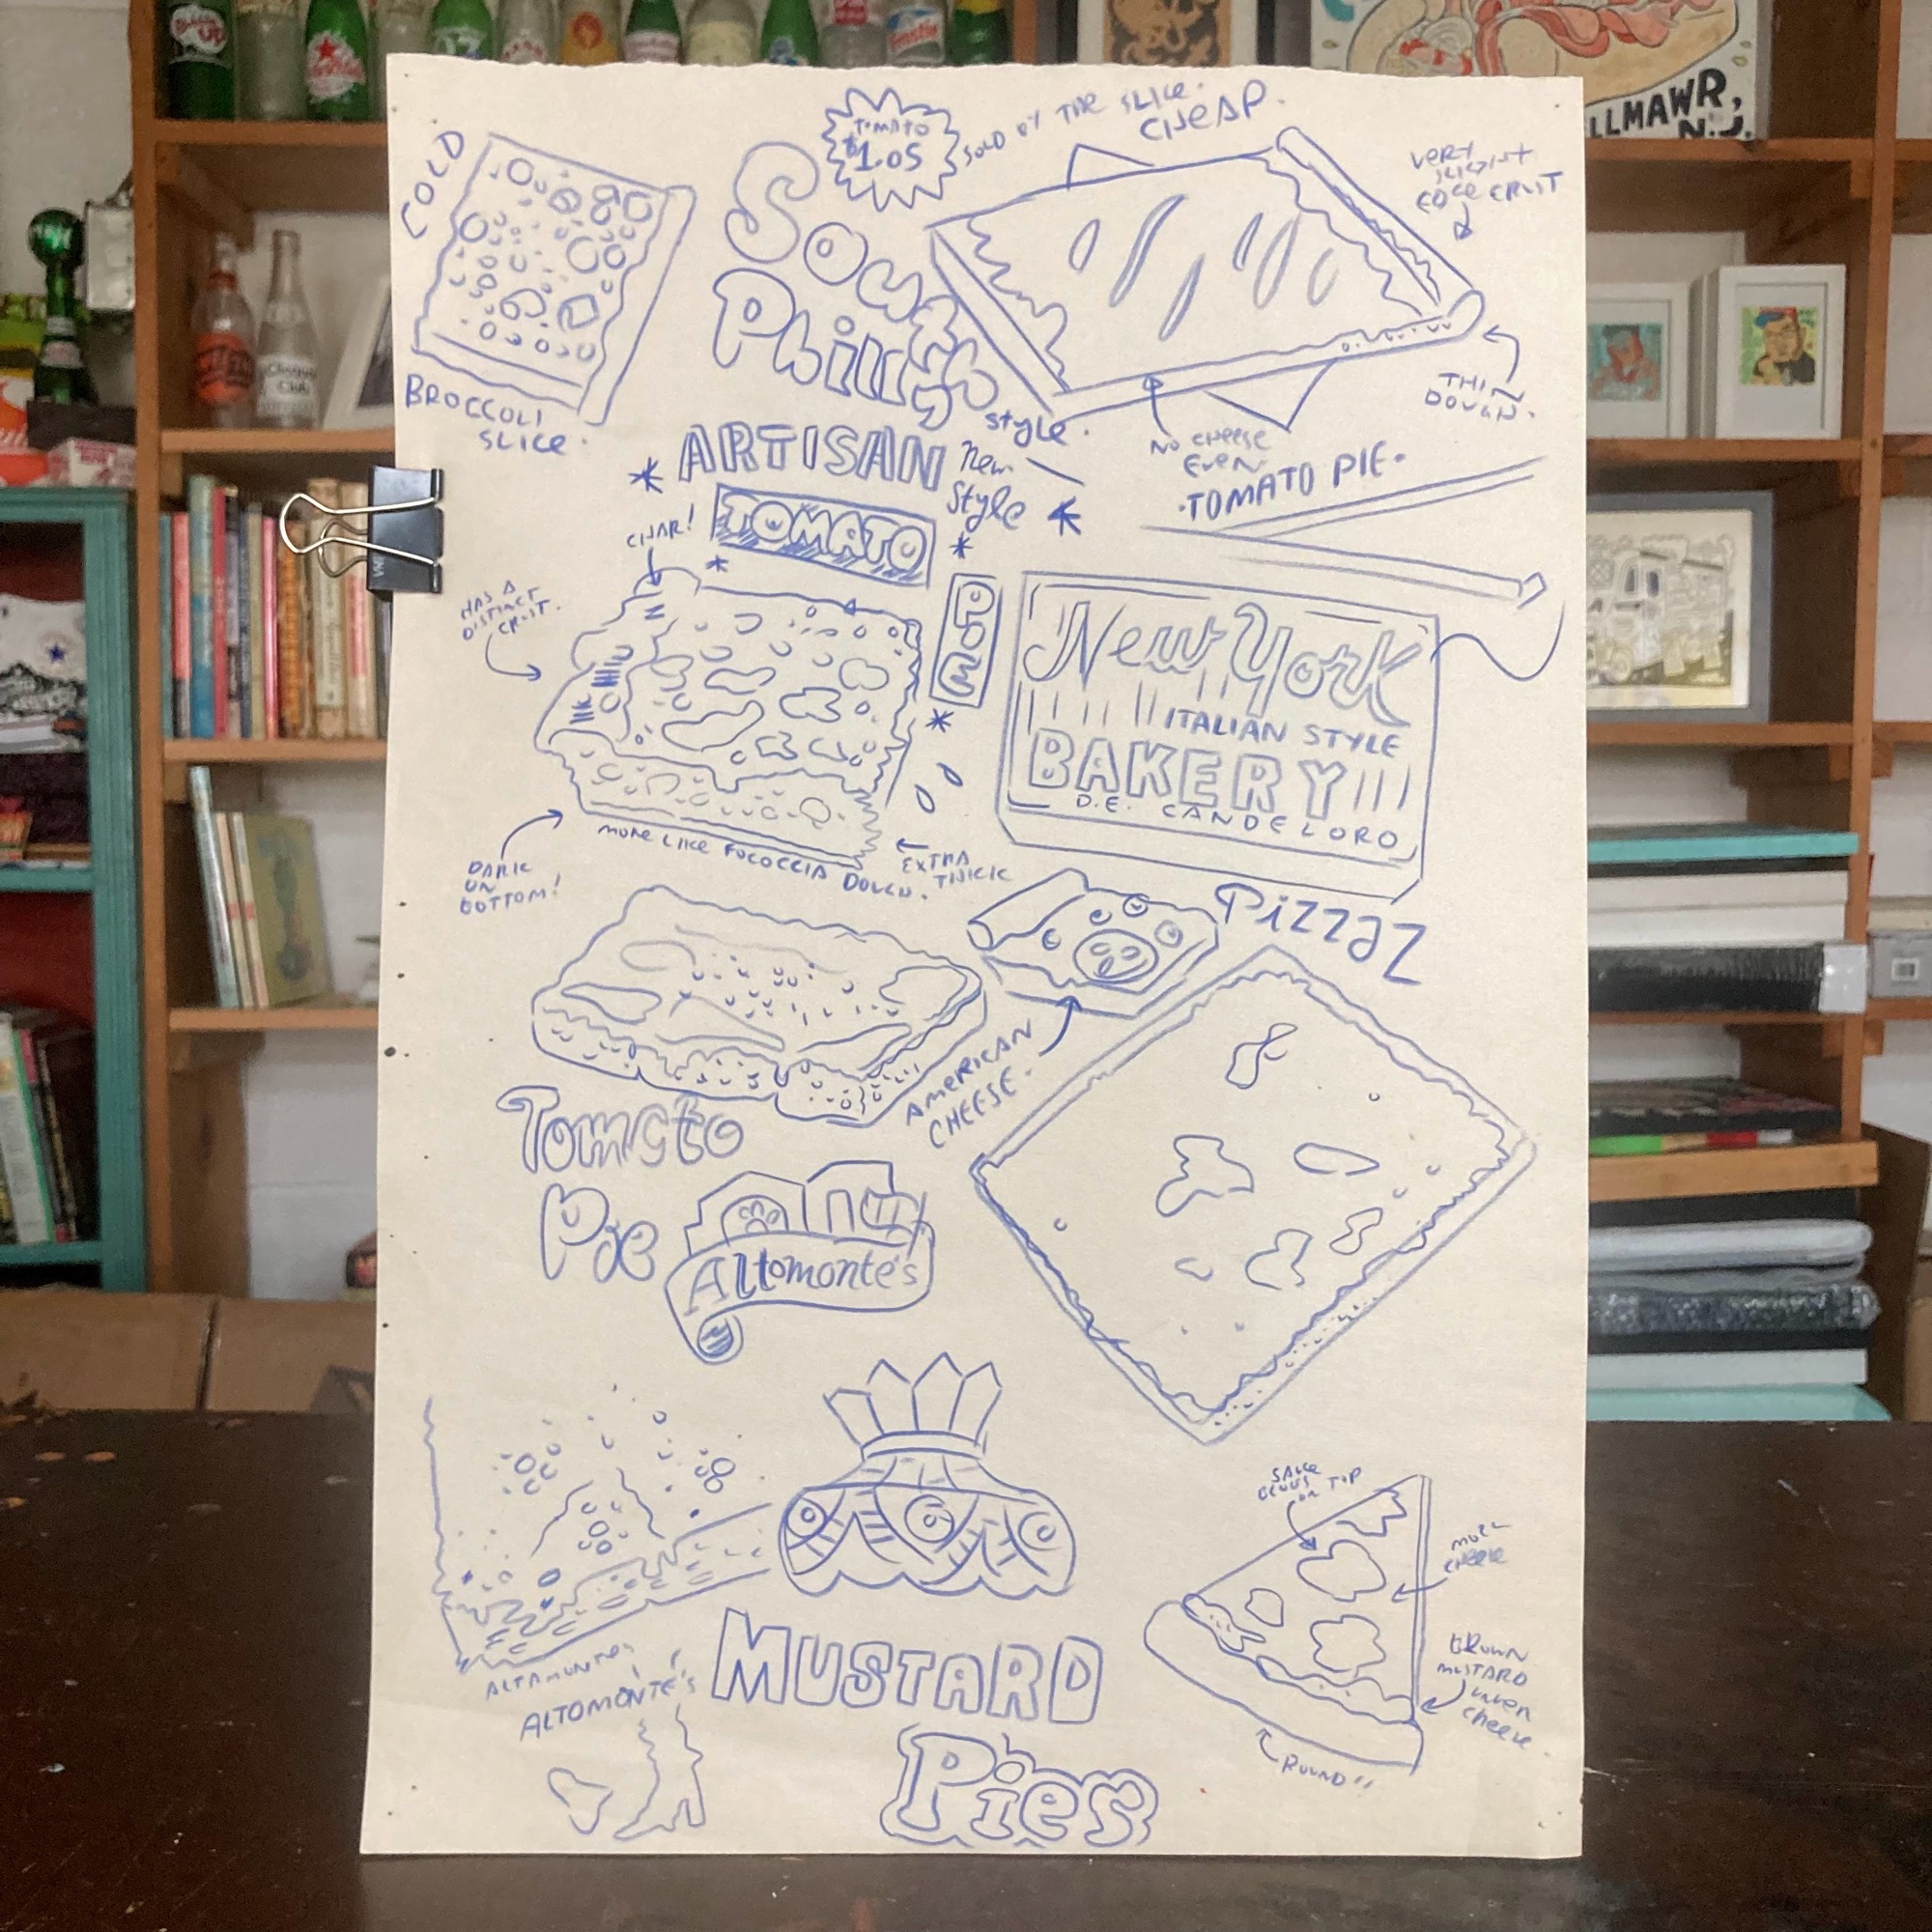 TOMATO
$1.05
SOLD BY THE SLICE.
CHEAP.
COLD
BROCCOLI
SLICE.
South
Philly
style.
VERY
SLIGHT
EDGE CRUST
THIN
DOUGH.
NO CHEESE
EVEN
·TOMATO PIE·
ARTISAN
New
Style
TOMATO
PIE
CHAR!
HAS A
DISTINCT
CRUST.
DARK
ON
BOTTOM!
MORE LIKE FOCOCCIA DOUGH.
EXTRA
THICK
New York
ITALIAN STYLE
BAKERY
D.E. CANDELORO
PizzaZ
AMERICAN
CHEESE.
Tomato
Pie
Altomonte's
ALTAMONTES
ALTOMONTE'S
MUSTARD
Pies
SAUCE
GLOBS
ON TOP
MORE
CHEESE
BROWN
MUSTARD
UNDER
CHEESE.
ROUND!!
LLMAWR,
N.J.